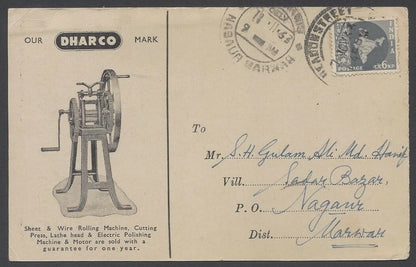 OUR DHARCO MARK
Sheet & Wire Rolling Machine, Cutting
Press, Lathe head & Electric Polishing
Machine & Motor are sold with a
guarantee for one year.
POSTAGE
6 NP
To
Mr. S. H. Gulam Ali Md. Hanif
Vill. Sadar Bazar,
P. O. Nagaur
Dist. Marwar